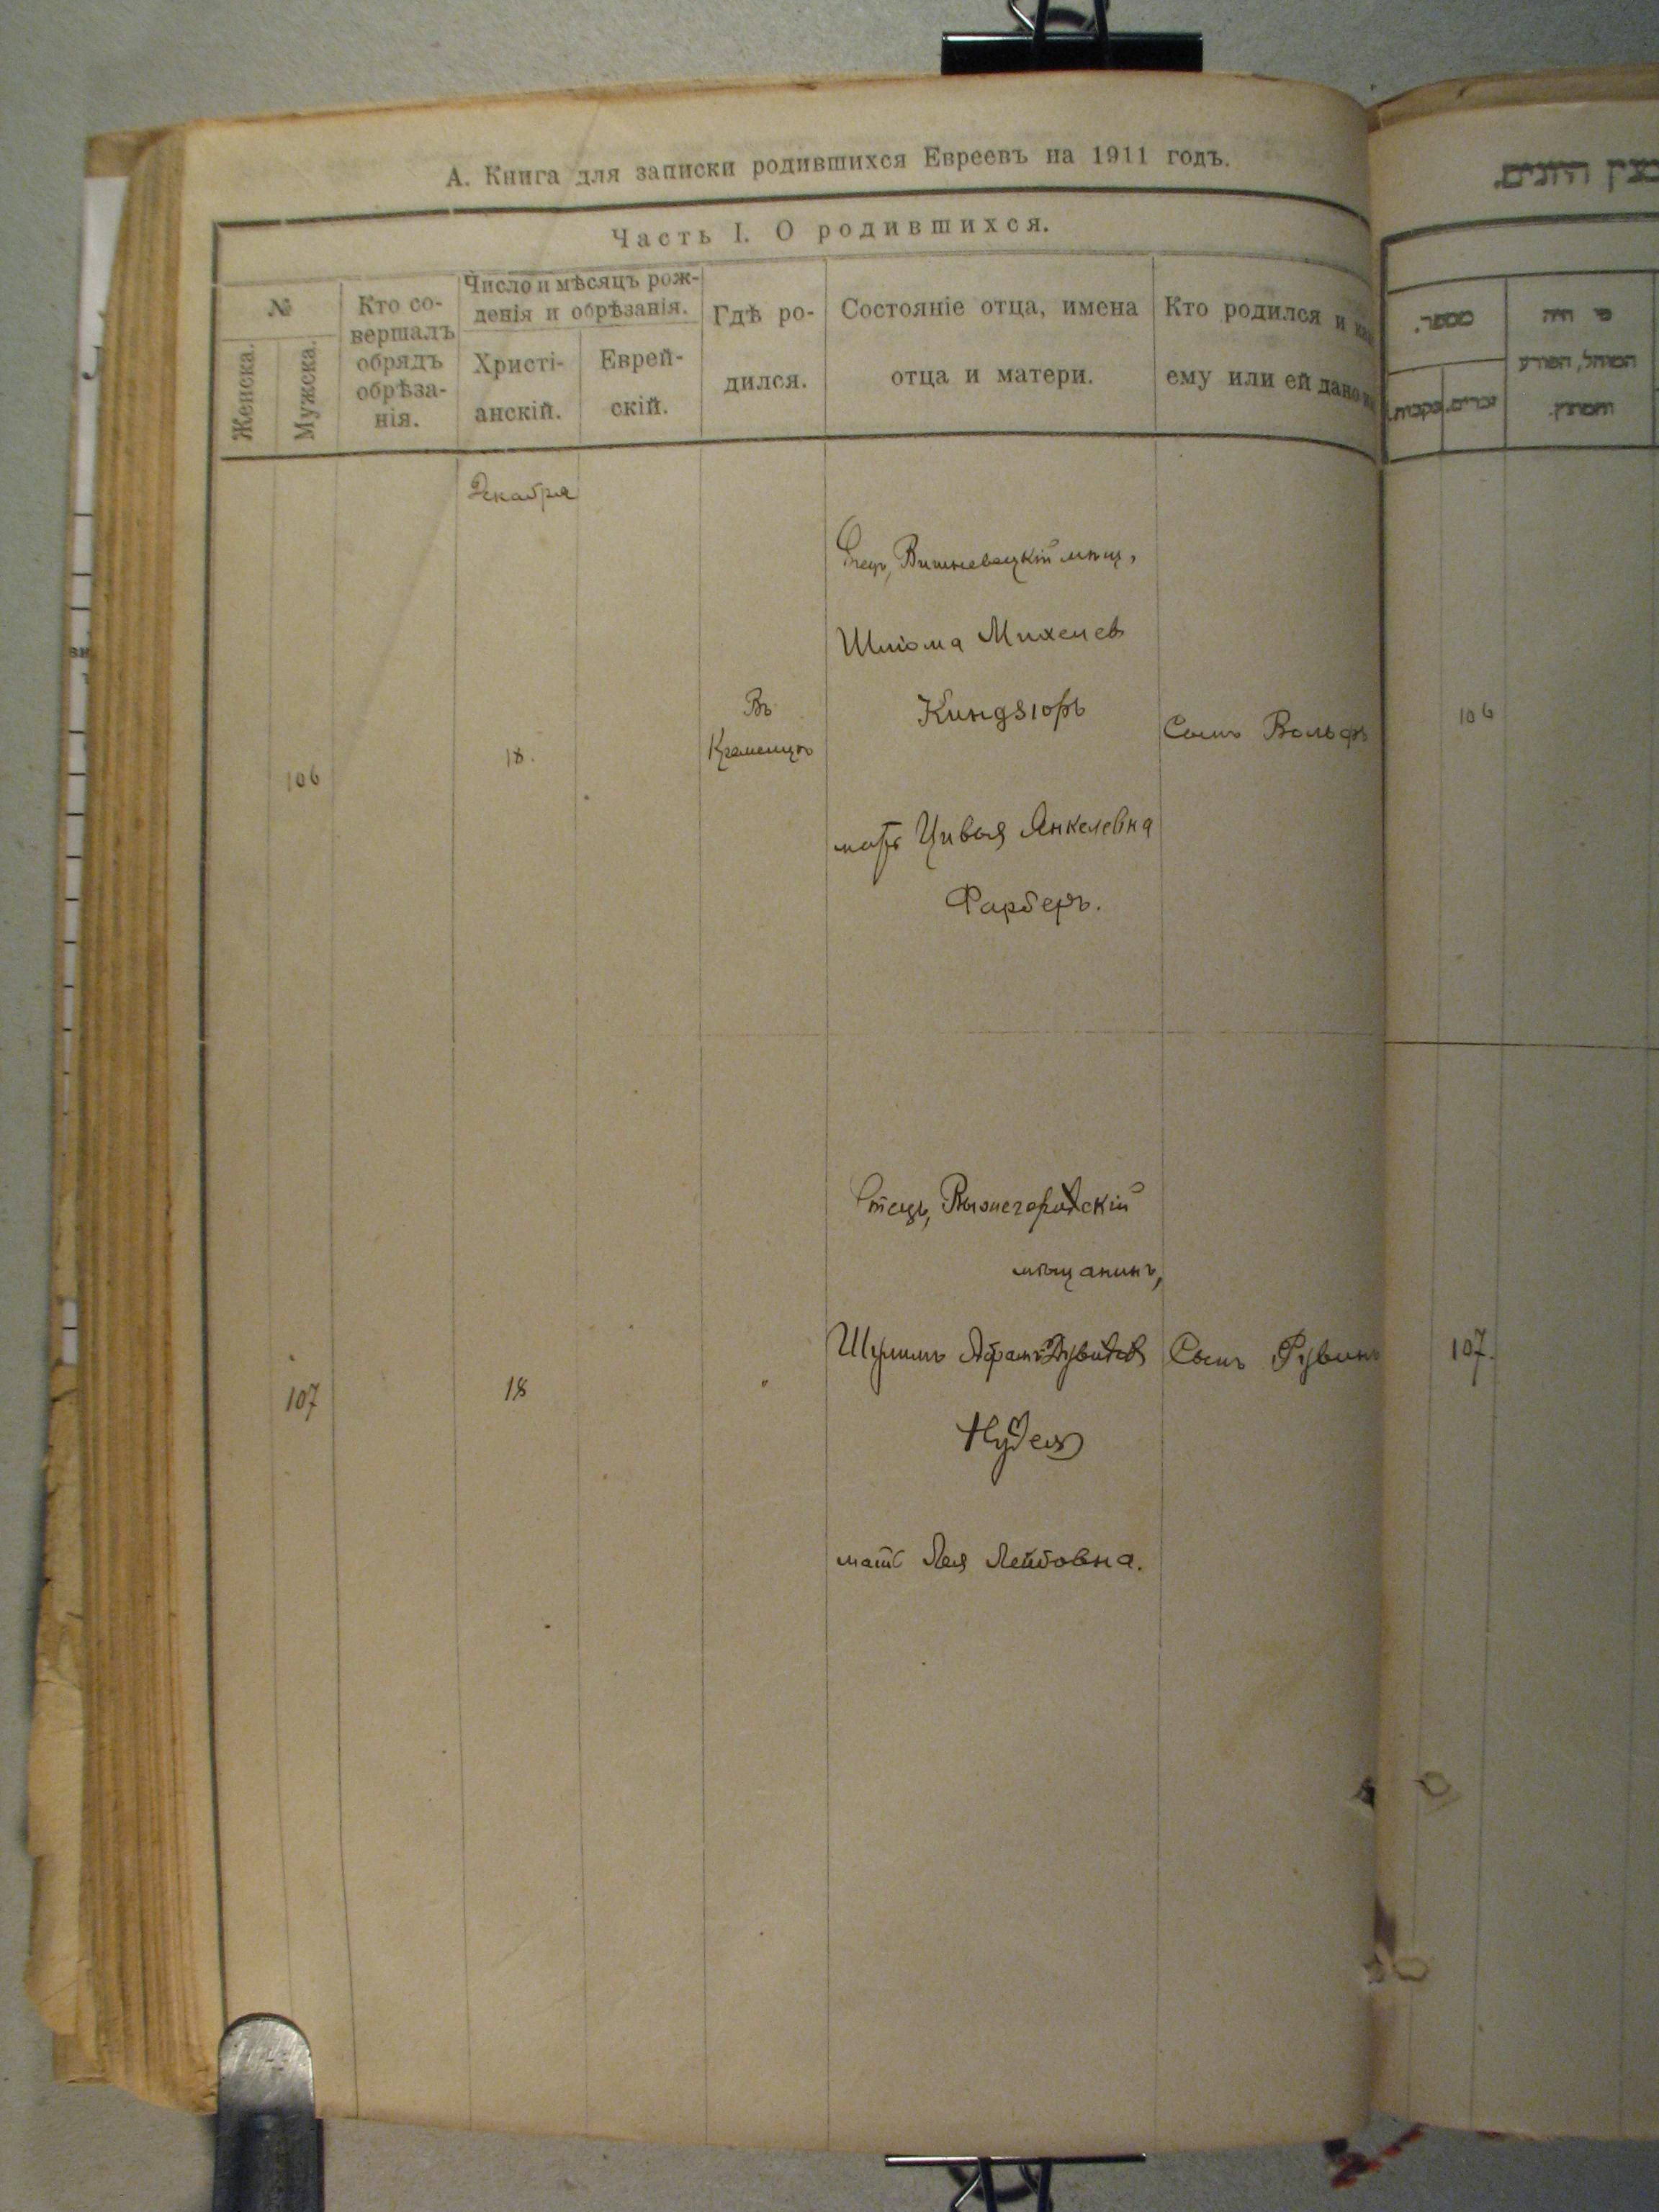 А. Книга для записки родившихся Евреевъ на 1911 годъ.
Часть I. О родившихся.
№
Женска.
Мужска.
Кто со-
вершалъ
обрядъ
обрѣза-
нія.
Число и мѣсяцъ рож-
денія и обрѣзанія.
Христі-
анскій.
Еврей-
скій.
Гдѣ ро-
дился.
Состояніе отца, имена
отца и матери.
Кто родился и
ему или ей дано
Декабря
106
18.
Въ
Кременцѣ
Отецъ, Вишневецкій мѣщ,
Шліома Михелев
Киндзіоръ
мать Цивья Янкелевна
Фарберъ.
Сынъ Вольфъ
107
18
"
Отецъ,
мѣщанинъ,
Шулимъ Абрамъ Дувидов
Нудель
мать Лея Лейбовна.
Сынъ Рувинъ
מספר.
זכרים.
נקבות.
מי היה
המוהל, הפורע
והמוצץ.
106
107.